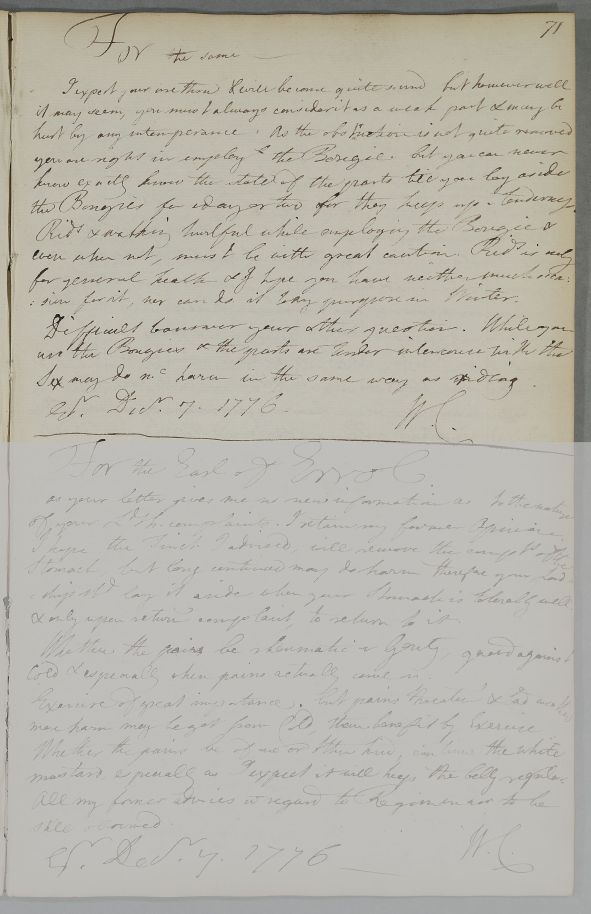 71
For the same
I expect your urethra & will become quite sound but however well
it may seem, you must always consider it as a weak part & may be
hurt by any intemperance. As the obstruction is not quite removed
you are right in employg the Bougie. but you can never
know exactly know the state of the parts till you lay aside
the Bougies for a day or two for they keep up a tenderness
Ridg & walking hurtful while employing the Bougie &
even when not, must be with great caution. Ridg is only
for general health & I hope you have neither much occa:
:sion for it, nor can do it to any purpose in Winter.
Difficult to answer your other question. While you
use the Bougies & the parts are tender intercourse with the
Sex may do no harm in the same way as riding.
Er. Decr. 7. 1776. W.C.
For the Earl of Errol
As your letter gives me no new information as to the nature
of your Ldsh. complaints. I retain my former Opinion.
I hope the Tinct. I advised, will remove the compts of the
Stomach, but long continued may do harm therefore your Lord
:ship shd lay it aside when your Stomach is tolerably well
& only upon return complaint, to return to it.
Whether the pains be rheumatic or Gouty, guard against
Cold & especially when pains actually come on.
Exercise of great importance. but pains threaten & bad weather
more harm may be got from Cold, than benefit by Exercise
Whether the pains be of one or other kind, can have the white
mustard, especially as I expect it will keep the belly regular.
All my former advices in regard to Regimen are to be
still observed.
Er. Decr. 7. 1776 W.C.